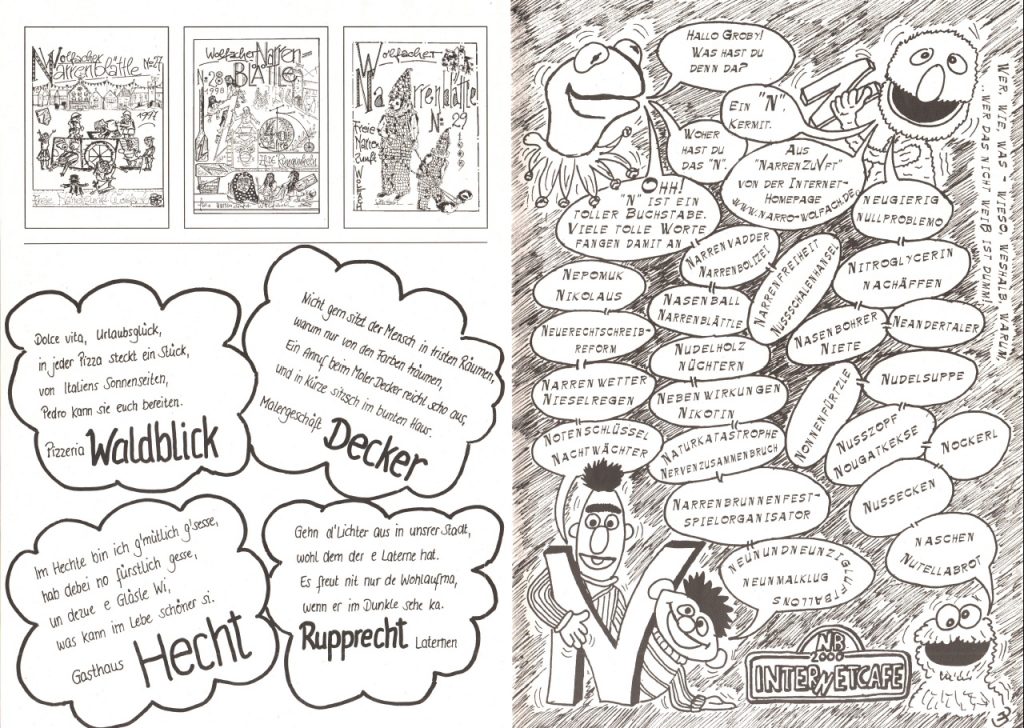 Wolfacher
Narrenblättle No. 27
1997
Wolfacher Narren=
BLÄTTLE
No 28
1998
Wolfacher
Narrenblättle
No. 29
Freie
Narro
Zunft
Wolfach
Dolce vita, Urlaubsglück,
in jeder Pizza steckt ein Stück,
von Italiens Sonnenseiten,
Pedro kann sie euch bereiten.
Pizzeria Waldblick
Nicht gern sitzt der Mensch in tristen Räumen,
warum nur von den Farben träumen,
Ein Anruf beim Maler Decker reicht scho aus,
und in Kürze sitzsch im bunten Haus.
Malergeschäft Decker
Im Hechte bin ich g'mütlich g'sesse,
hab debei no fürstlich gesse,
un dezue e Gläsle Wi,
was kann im Lebe schöner si.
Gasthaus Hecht
Gehn d'Lichter aus in unsrer Stadt,
wohl dem der e Laterne hat.
Es freut nit nur de Wohlaufma,
wenn er im Dunkle sehe ka.
Rupprecht Laternen
HALLO GROBY!
WAS HAST DU
DENN DA?
EIN "N".
KERMIT.
WOHER
HAST DU
DAS "N".
AUS
"NARRENZUVPT"
VON DER INTERNET-
HOMEPAGE
WWW.NARRO-WOLFACH.DE
OHH!
"N" IST EIN
TOLLER BUCHSTABE.
VIELE TOLLE WORTE
FANGEN DAMIT AN
NEUGIERIG
NULLPROBLEMO
NARRENVADDER
NARRENBOLIZEI
NARRENFREIHEIT
NUSSSCHALENHANSEL
NITROGLYCERIN
NACHÄFFEN
NEPOMUK
NIKOLAUS
NASENBALL
NARRENBLÄTTLE
NASENBOHRER
NIETE
NEANDERTALER
NEUERECHTSCHREIB-
REFORM
NUDELHOLZ
NÜCHTERN
NUDELSUPPE
NARREN WETTER
NIESELREGEN
NEBENWIRKUNGEN
NIKOTIN
NONNENFÜRZLE
NUSSZOPF
NOUGATKEKSE
NOCKERL
NOTENSCHLÜSSEL
NACHTWÄCHTER
NATURKATASTROPHE
NERVENZUSAMMENBRUCH
NUSSECKEN
NARRENBRUNNENFEST-
SPIELORGANISATOR
NASCHEN
NUTELLABROT
NEUNUNDNEUNZIGLUFTBALLONS
NEUNMALKLUG
N
N
NB
2000
INTERNETCAFE
WER, WIE, WAS - WIESO, WESHALB, WARUM,
..WER DAS NICHT WEIß IST DUMM!